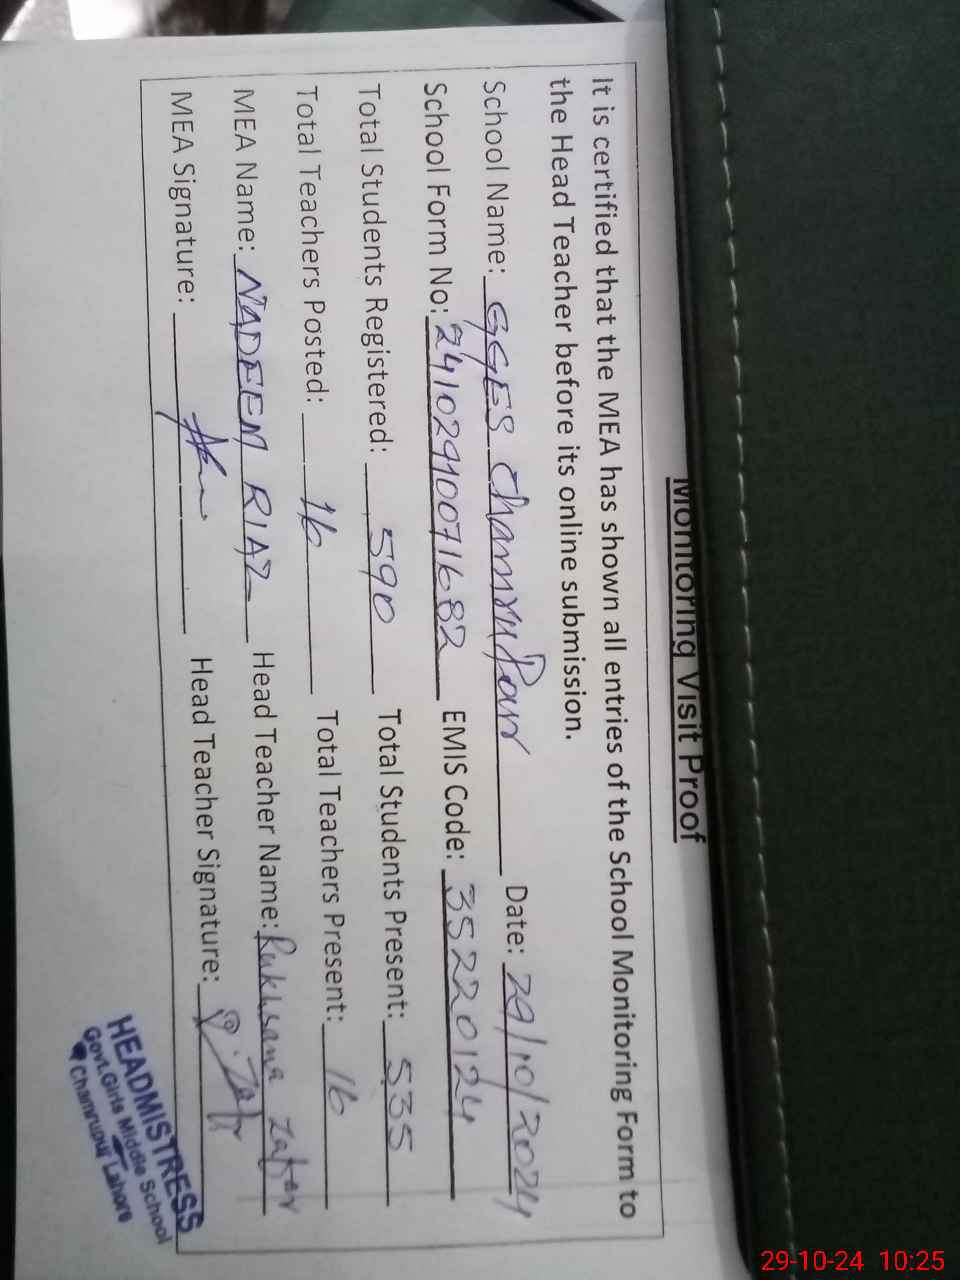 Monitoring Visit Proof
It is certified that the MEA has shown all entries of the School Monitoring Form to
the Head Teacher before its online submission.
School Name: GGES Chamrupur Date: 29/10/2024
School Form No: 24102910071682 EMIS Code: 35220124
Total Students Registered: 590 Total Students Present: 535
Total Teachers Posted: 16 Total Teachers Present: 16
MEA Name: NADEEM RIAZ Head Teacher Name: Rukhsana Zafar
MEA Signature: Head Teacher Signature: R. Zafr
HEADMISTRESS
Govt. Girls Middle School
Chamrupur Lahore
29-10-24 10:25